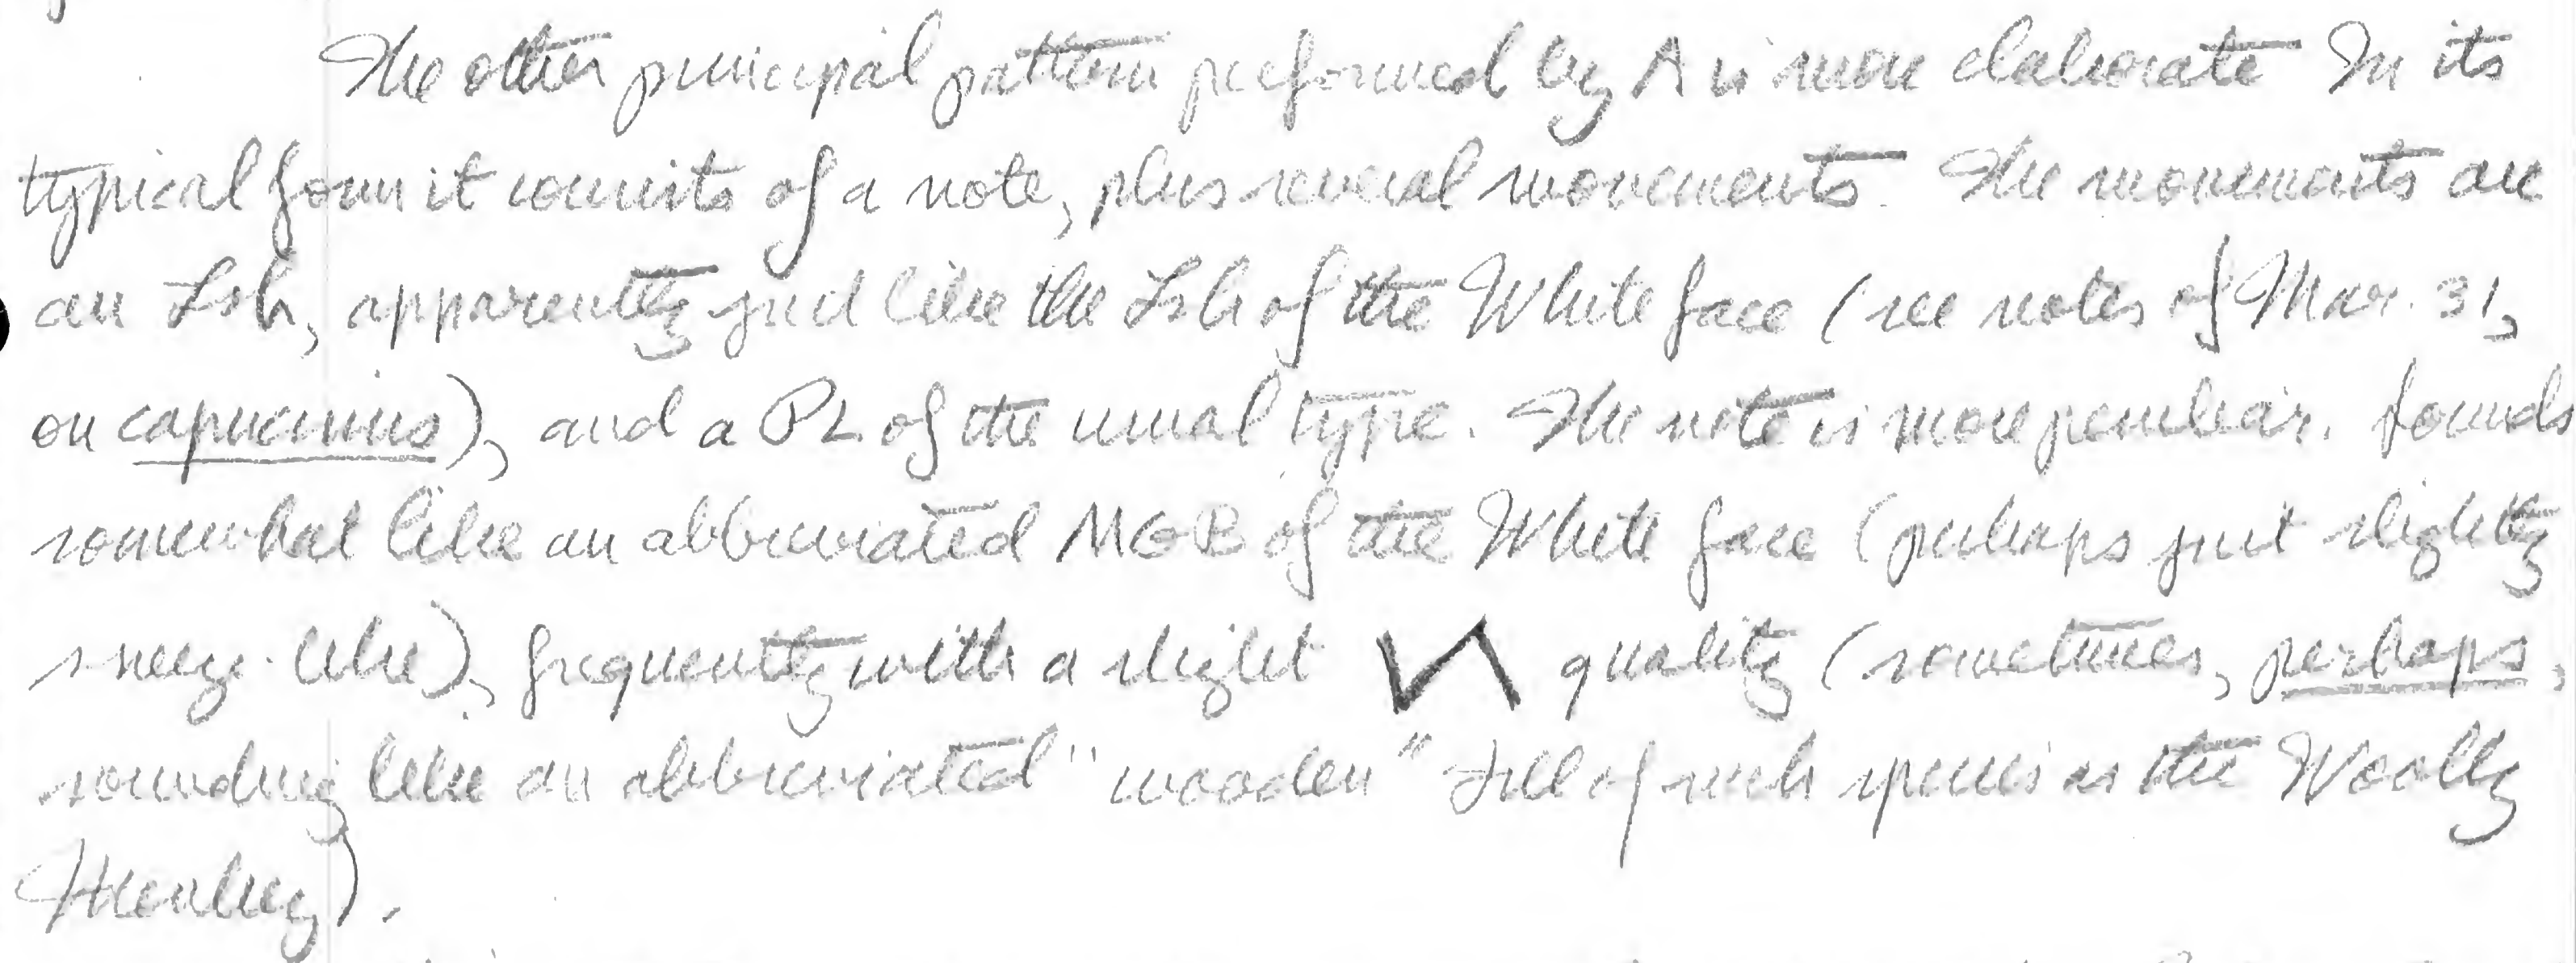 The other principal pattern performed by A is more elaborate In its
typical form it consists of a note, plus several movements. The movements are
an Lsh, apparently just like the Lsh of the White face (see notes of Mar. 31,
on capucinus), and a PL of the usual type. The note is more peculiar. Sounds
somewhat like an abbreviated MGB of the White face (perhaps just slightly
sneeze-like), frequently with a slight quality (sometimes, perhaps,
sounding like an abbreviated "wooden" of such species as the Woolly
Monkey).